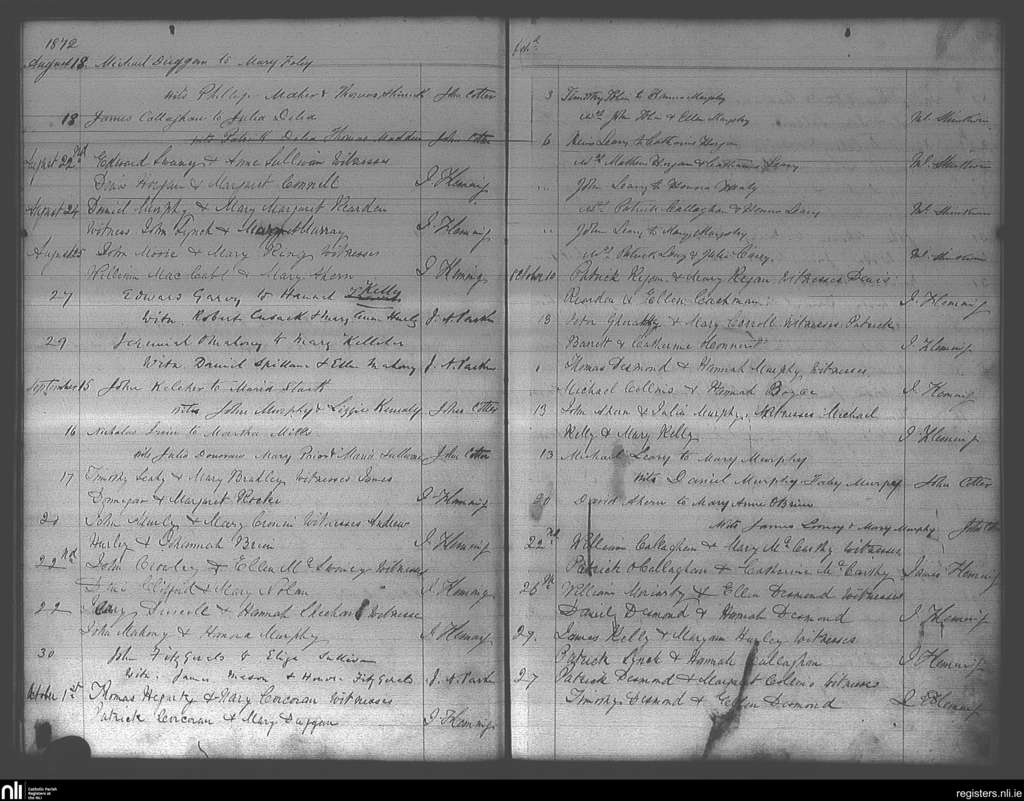 1872
August 18. Michael Duggan to Mary Foley
Wits Phillip Maher & Thomas John Cotter
18 James Callaghan to Julia Delea
Wits Patrick Delea Thomas Madden John Cotter
August 22nd Edward Swany & Anne Sullivan Witnesses
Denis Horgan & Margaret Connell J. Fleming
August 24 Daniel Murphy & Mary Margaret Reardon
Witness John Lynch & Murray J. Fleming
August 25 John Moore & Mary Ring Witnesses
William Mac Cabe & Mary Ahern J Fleming
27 Edward Garvy to Hanna Kelly
Witn. Robert Cusack & Mary Anne Hurly J. A. Parker
29 Jeremiah O'Mahony to Mary Kelleher
Witn Daniel Spillane & Ellen Mahony J. A. Parker
September 15 John Kelcher to Maria Stack
Wits John Murphy & Lizzie Kennedy John Cotter
16 Nicholas to Martha Mills
Wits Julia Donovan Mary Prior & Maria Sullivan John Cotter
17 Timothy Leahy & Mary Bradley Witnesses James
Donnegan & Margaret Roche J Fleming
21 John Hurley & Mary Cronin Witnesses Andrew
Hurley & Johannah Brien J. Fleming
22nd John Crowley & Ellen McSweeney Witnesses
Denis Clifford & Mary Nolan J. Fleming
22 Driscoll & Hannah Sheehan Witnesses
John Mahony & Honora Murphy J Fleming
30 John FitzGerald to Eliza Sullivan
Witn. James Mason & Honora FitzGerald J. A. Parker
October 1st Thomas Hegarty & Mary Corcoran Witnesses
Patrick Corcoran & Mary Duggan J Fleming
3 Timothy to Hanna Murphy
Wits John & Ellen Murphy
6 Denis Leary to Catherine Horgan
Wits Mathew Horgan & Catherine Leary
" John Leary to Honora
Wits Patrick Callaghan & Honora Leary
" John Leary to Mary Murphy
Wits Patrick Leary & Julia Casey
October 10 Patrick Regan & Mary Regan Witnesses Denis
Reardon & Ellen Cashman J. Fleming
13 John & Mary Carroll Witnesses Patrick
Barrett & Catherine Connors J Fleming
Thomas Desmond & Hannah Murphy Witnesses
Michael Collins & Hannah J Fleming
13 John Ahern & Julia Murphy. Witnesses Michael
Kelly & Mary Kelly J Fleming
13 Michael Leary to Mary Murphy
Wits Daniel Murphy Murphy John Cotter
20 David Ahern to Mary Anne O'Brien
Wits James Looney & Mary Murphy John Cotter
22nd William Callaghan & Mary McCarthy Witnesses
Patrick O'Callaghan & Catherine McCarthy James Fleming
26th William Moriarty & Ellen Desmond Witnesses
Daniel Desmond & Hannah Desmond J Fleming
27. James Kelly & Maryann Hurley Witnesses
Patrick Lynch & Hannah Callaghan J Fleming
27 Patrick Desmond & Margaret Collins Witnesses
Timothy Desmond & Ellen Desmond J Fleming
nli
Catholic Parish
Registers at
the NLI
registers.nli.ie